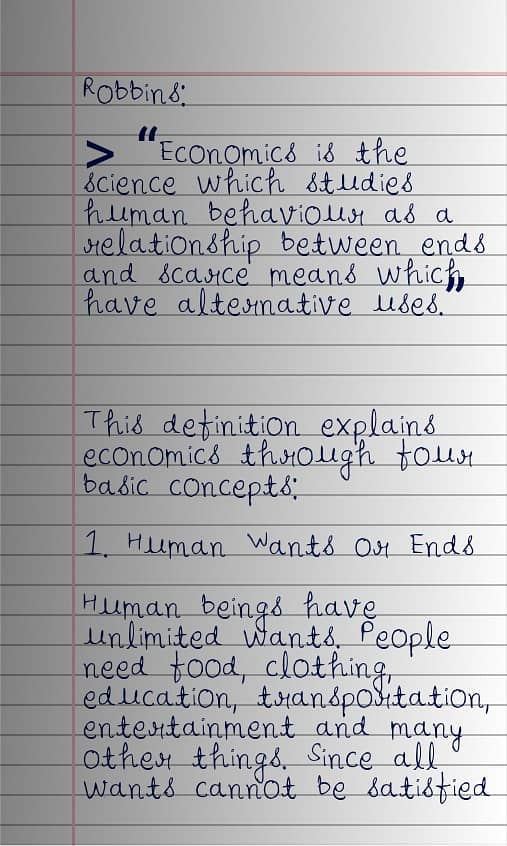 Robbins:
> "Economics is the
science which studies
human behaviour as a
relationship between ends
and scarce means which
have alternative uses."
This definition explains
economics through four
basic concepts:
1. Human Wants or Ends
Human beings have
unlimited wants. People
need food, clothing,
education, transportation,
entertainment and many
other things. Since all
wants cannot be satisfied